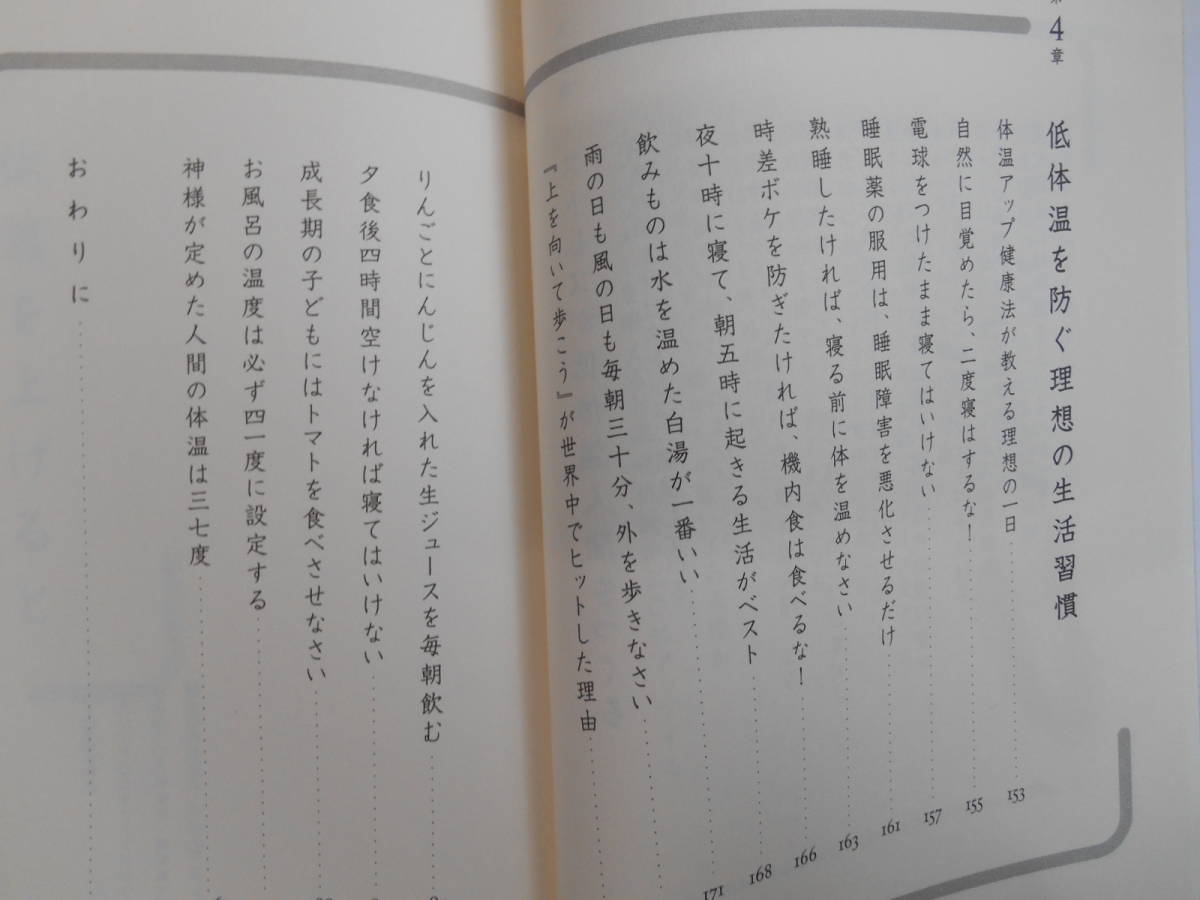 第4章
低体温を防ぐ理想の生活習慣
体温アップ健康法が教える理想の一日 153
自然に目覚めたら、二度寝はするな! 155
電球をつけたまま寝てはいけない 157
睡眠薬の服用は、睡眠障害を悪化させるだけ 161
熟睡したければ、寝る前に体を温めなさい 163
時差ボケを防ぎたければ、機内食は食べるな! 166
夜十時に寝て、朝五時に起きる生活がベスト 168
飲みものは水を温めた白湯が一番いい 171
雨の日も風の日も毎朝三十分、外を歩きなさい
『上を向いて歩こう』が世界中でヒットした理由
りんごとにんじんを入れた生ジュースを毎朝飲む
夕食後四時間空けなければ寝てはいけない
成長期の子どもにはトマトを食べさせなさい
お風呂の温度は必ず四一度に設定する
神様が定めた人間の体温は三七度
おわりに